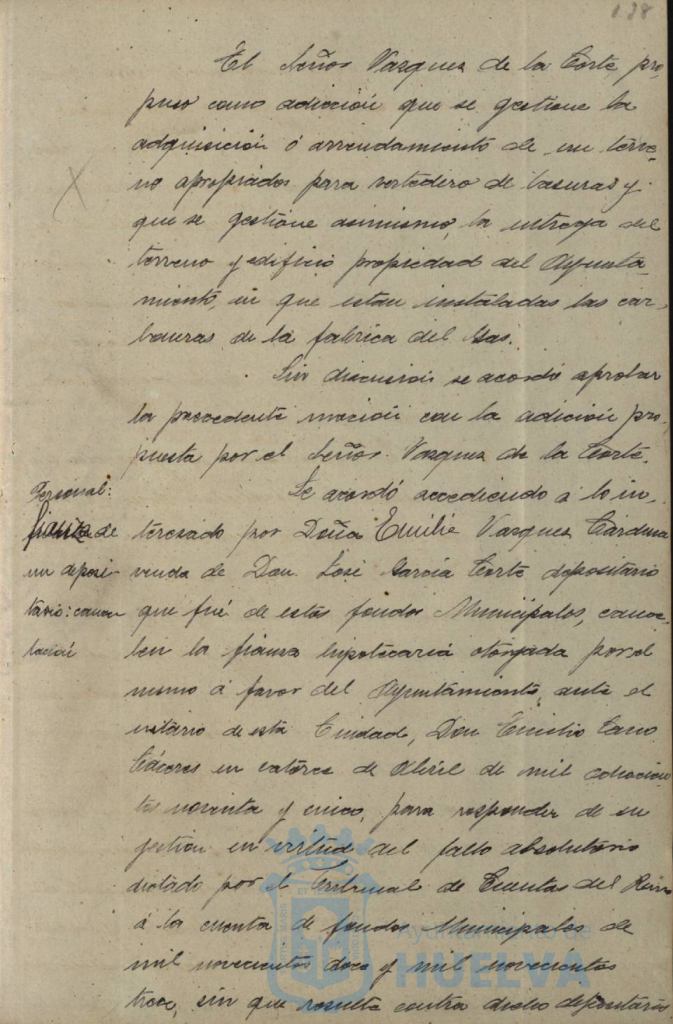 138
El Señor Vazquez de la Corte pro-
puso como adicción que se gestione la
adquisición ó arrendamiento de un terre-
no apropiados para vertedero de basuras y
que se gestione asimismo, la entrega del
terreno y edificio propiedad del Ayunta-
miento, en que estan instaladas las car-
boneras de la fabrica del Gas.
Sin discusión se acordó aprobar
la precedente moción con la adición pro-
puesta por el Señor Vazquez de la Corte.
Personal:
fianza de
un deposi-
tario: cance
lación
Se acordó accediendo á lo in-
teresado por Doña Emilia Vazquez Cardena
viuda de Don José García Corte depositario
que fué de estos fondos Municipales, cance-
len la fianza hipotecaria otorgada por el
mismo á favor del Ayuntamiento, ante el
notario de esta Ciudad, Don Emilio Cano
Cáceres en catorce de Abril de mil ochocien
tos noventa y cinco, para responder de su
gestion en virtud del fallo absolutorio
dictado por el Tribunal de Cuentas del Reino
á la cuenta de fondos Municipales de
mil novecientos doce y mil novecientos
trece, sin que resulte contra dicho depositario
Ayuntamiento de
HUELVA